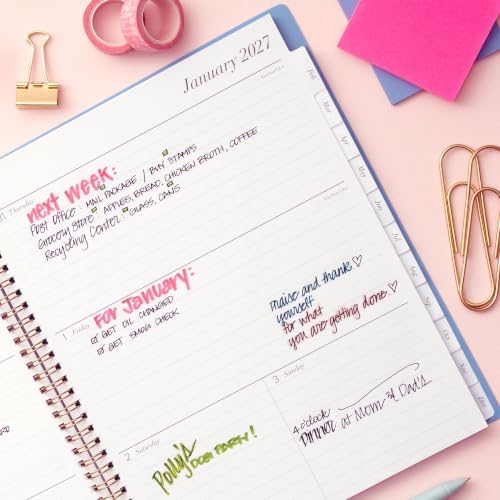 January 2027
31 Thursday
next week:
Post Office: MAIL PACKAGE / BUY STAMPS
Grocery Store: APPLES, BREAD, CHICKEN BROTH, COFFEE
Recycling Center: GLASS, CANS
1 Friday
For January:
GET OIL CHANGED
GET SMOG CHECK
praise and thank
yourself
for what
you are getting done.
2 Saturday
Polly's DOG PARTY!
3 Sunday
4 o'clock
DINNER at Mom & Dad's
Feb
Mar
Apr
May
Jun
Jul
Aug
Sep
Oct
Nov
Dec